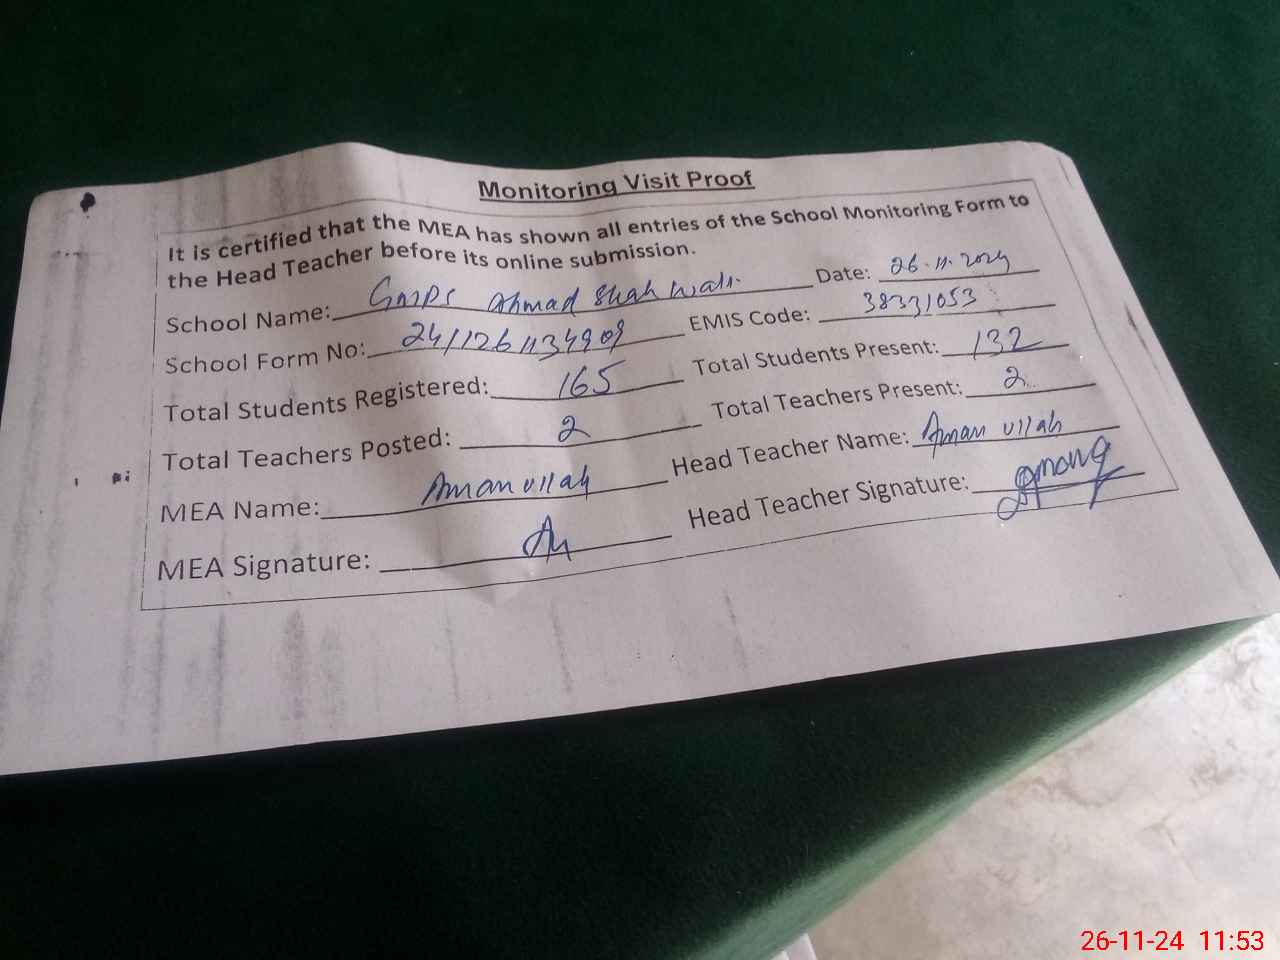 Monitoring Visit Proof
It is certified that the MEA has shown all entries of the School Monitoring Form to
the Head Teacher before its online submission.
School Name: GMPS Ahmad Shah Wali. Date: 26.11.2024
School Form No: 2411261134909 EMIS Code: 38331053
Total Students Registered: 165 Total Students Present: 132
Total Teachers Posted: 2 Total Teachers Present: 2
MEA Name: Aman ullah Head Teacher Name: Aman ullah
MEA Signature: Head Teacher Signature:
26-11-24 11:53